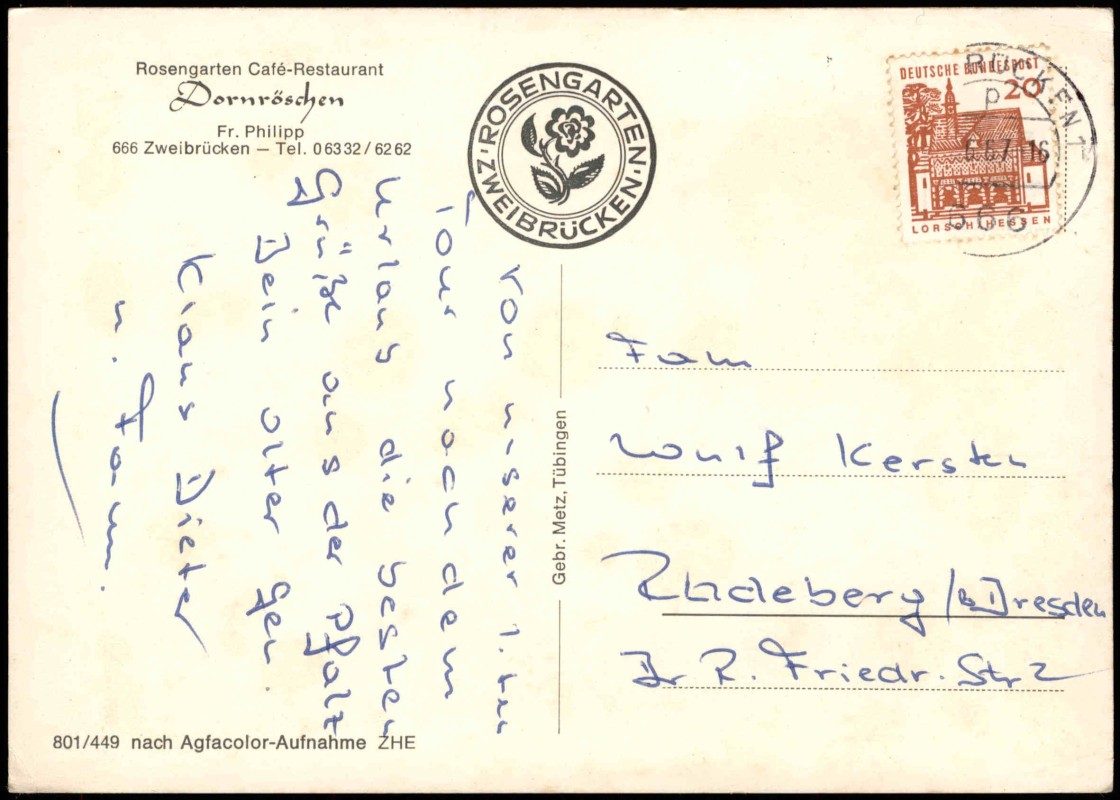 Rosengarten Café-Restaurant
Dornröschen
Fr. Philipp
666 Zweibrücken — Tel. 06332/6262
ROSENGARTEN
ZWEIBRÜCKEN
DEUTSCHE BUNDESPOST
20
LORSCH/HESSEN
BRÜCKEN 1
6.6.7 -16
666
Von unserer 1. ten
Tour nach dem
Urlaub die besten
Grüße aus der Pfalz
Dein alter Gen.
Klaus Dieter
u. Fam.
Gebr. Metz, Tübingen
Fam
Wulf Kersten
Radeberg / b Dresden
Dr R. Friedr. Str 2
801/449 nach Agfacolor-Aufnahme ZHE